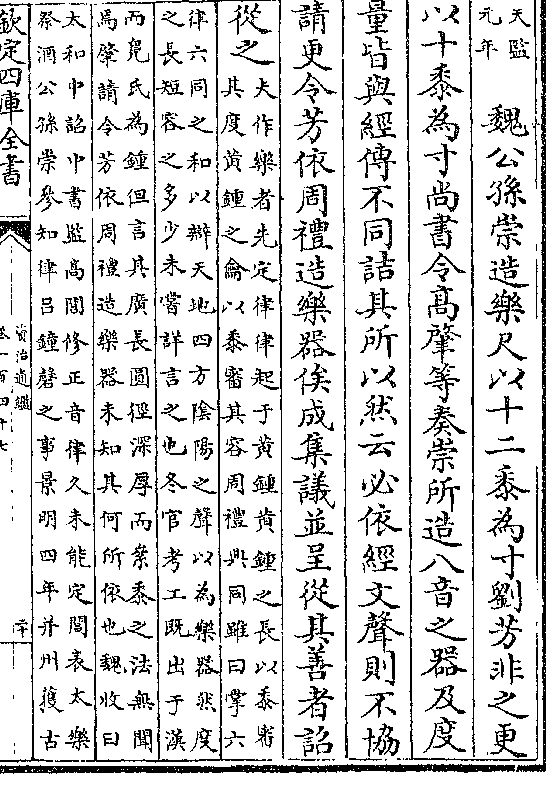 天監
元年
魏公孫崇造樂尺以十二黍為寸劉芳非之更
以十黍為寸尚書令高肇等奏崇所造八音之器及度
量皆與經傳不同詰其所以然云必依經文聲則不協
請更令芳依周禮造樂器俟成集議並呈從其善者詔
從之
夫作樂者先定律律起于黄鍾黄鍾之長以黍審
其度黄鍾之龠以黍審其容周禮典同雖曰掌六
律六同之和以辨天地四方陰陽之聲以為樂器然度
之長短容之多少未嘗詳言之也冬官考工既出于漢
而鳧氏為鍾但言其廣長圓徑深厚而絫黍之法無聞
焉肇請令芳依周禮造樂器未知其何所依也魏收曰
太和中詔中書監高閭修正音律久未能定閭表太樂
祭酒公孫崇參知律吕鐘磬之事景明四年并州獲古
欽定四庫全書
資治通鑑
卷一百四十七